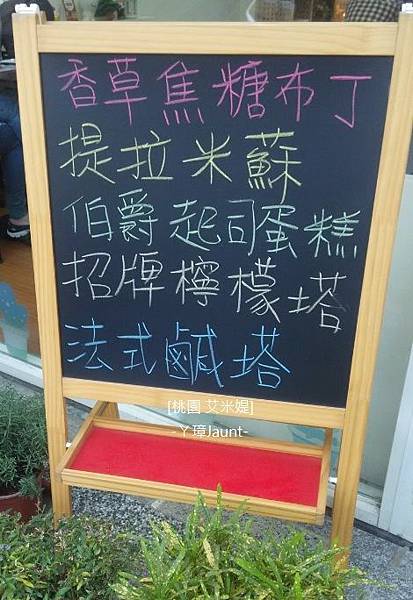 香草焦糖布丁
提拉米蘇
伯爵起司蛋糕
招牌檸檬塔
法式鹹塔
[桃園 艾米媞]
-ㄚ璋Jaunt-